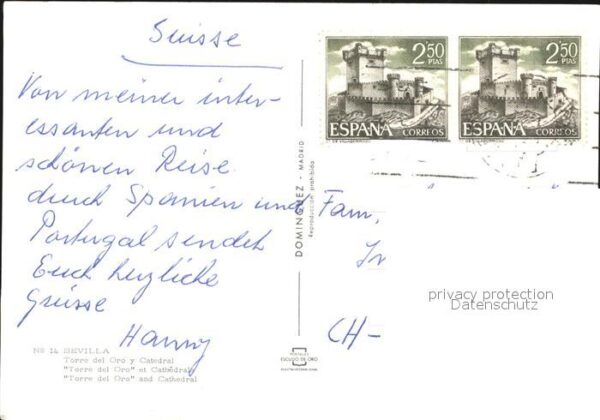 Suisse
Von meiner inter-
essanten und
schönen Reise
durch Spanien und
Portugal sendet
Euch herzliche
Grüsse
Hanny
Nº 14 SEVILLA
Torre del Oro y Catedral
"Torre del Oro" et Cathédrale
"Torre del Oro" and Cathedral
DOMINGUEZ - MADRID
Reproducción prohibida
POSTALES
ESCUDO DE ORO
2,50
PTAS
ESPAÑA CORREOS
2,50
PTAS
ESPAÑA CORREOS
Fam.
Jr
CH-
privacy protection
Datenschutz